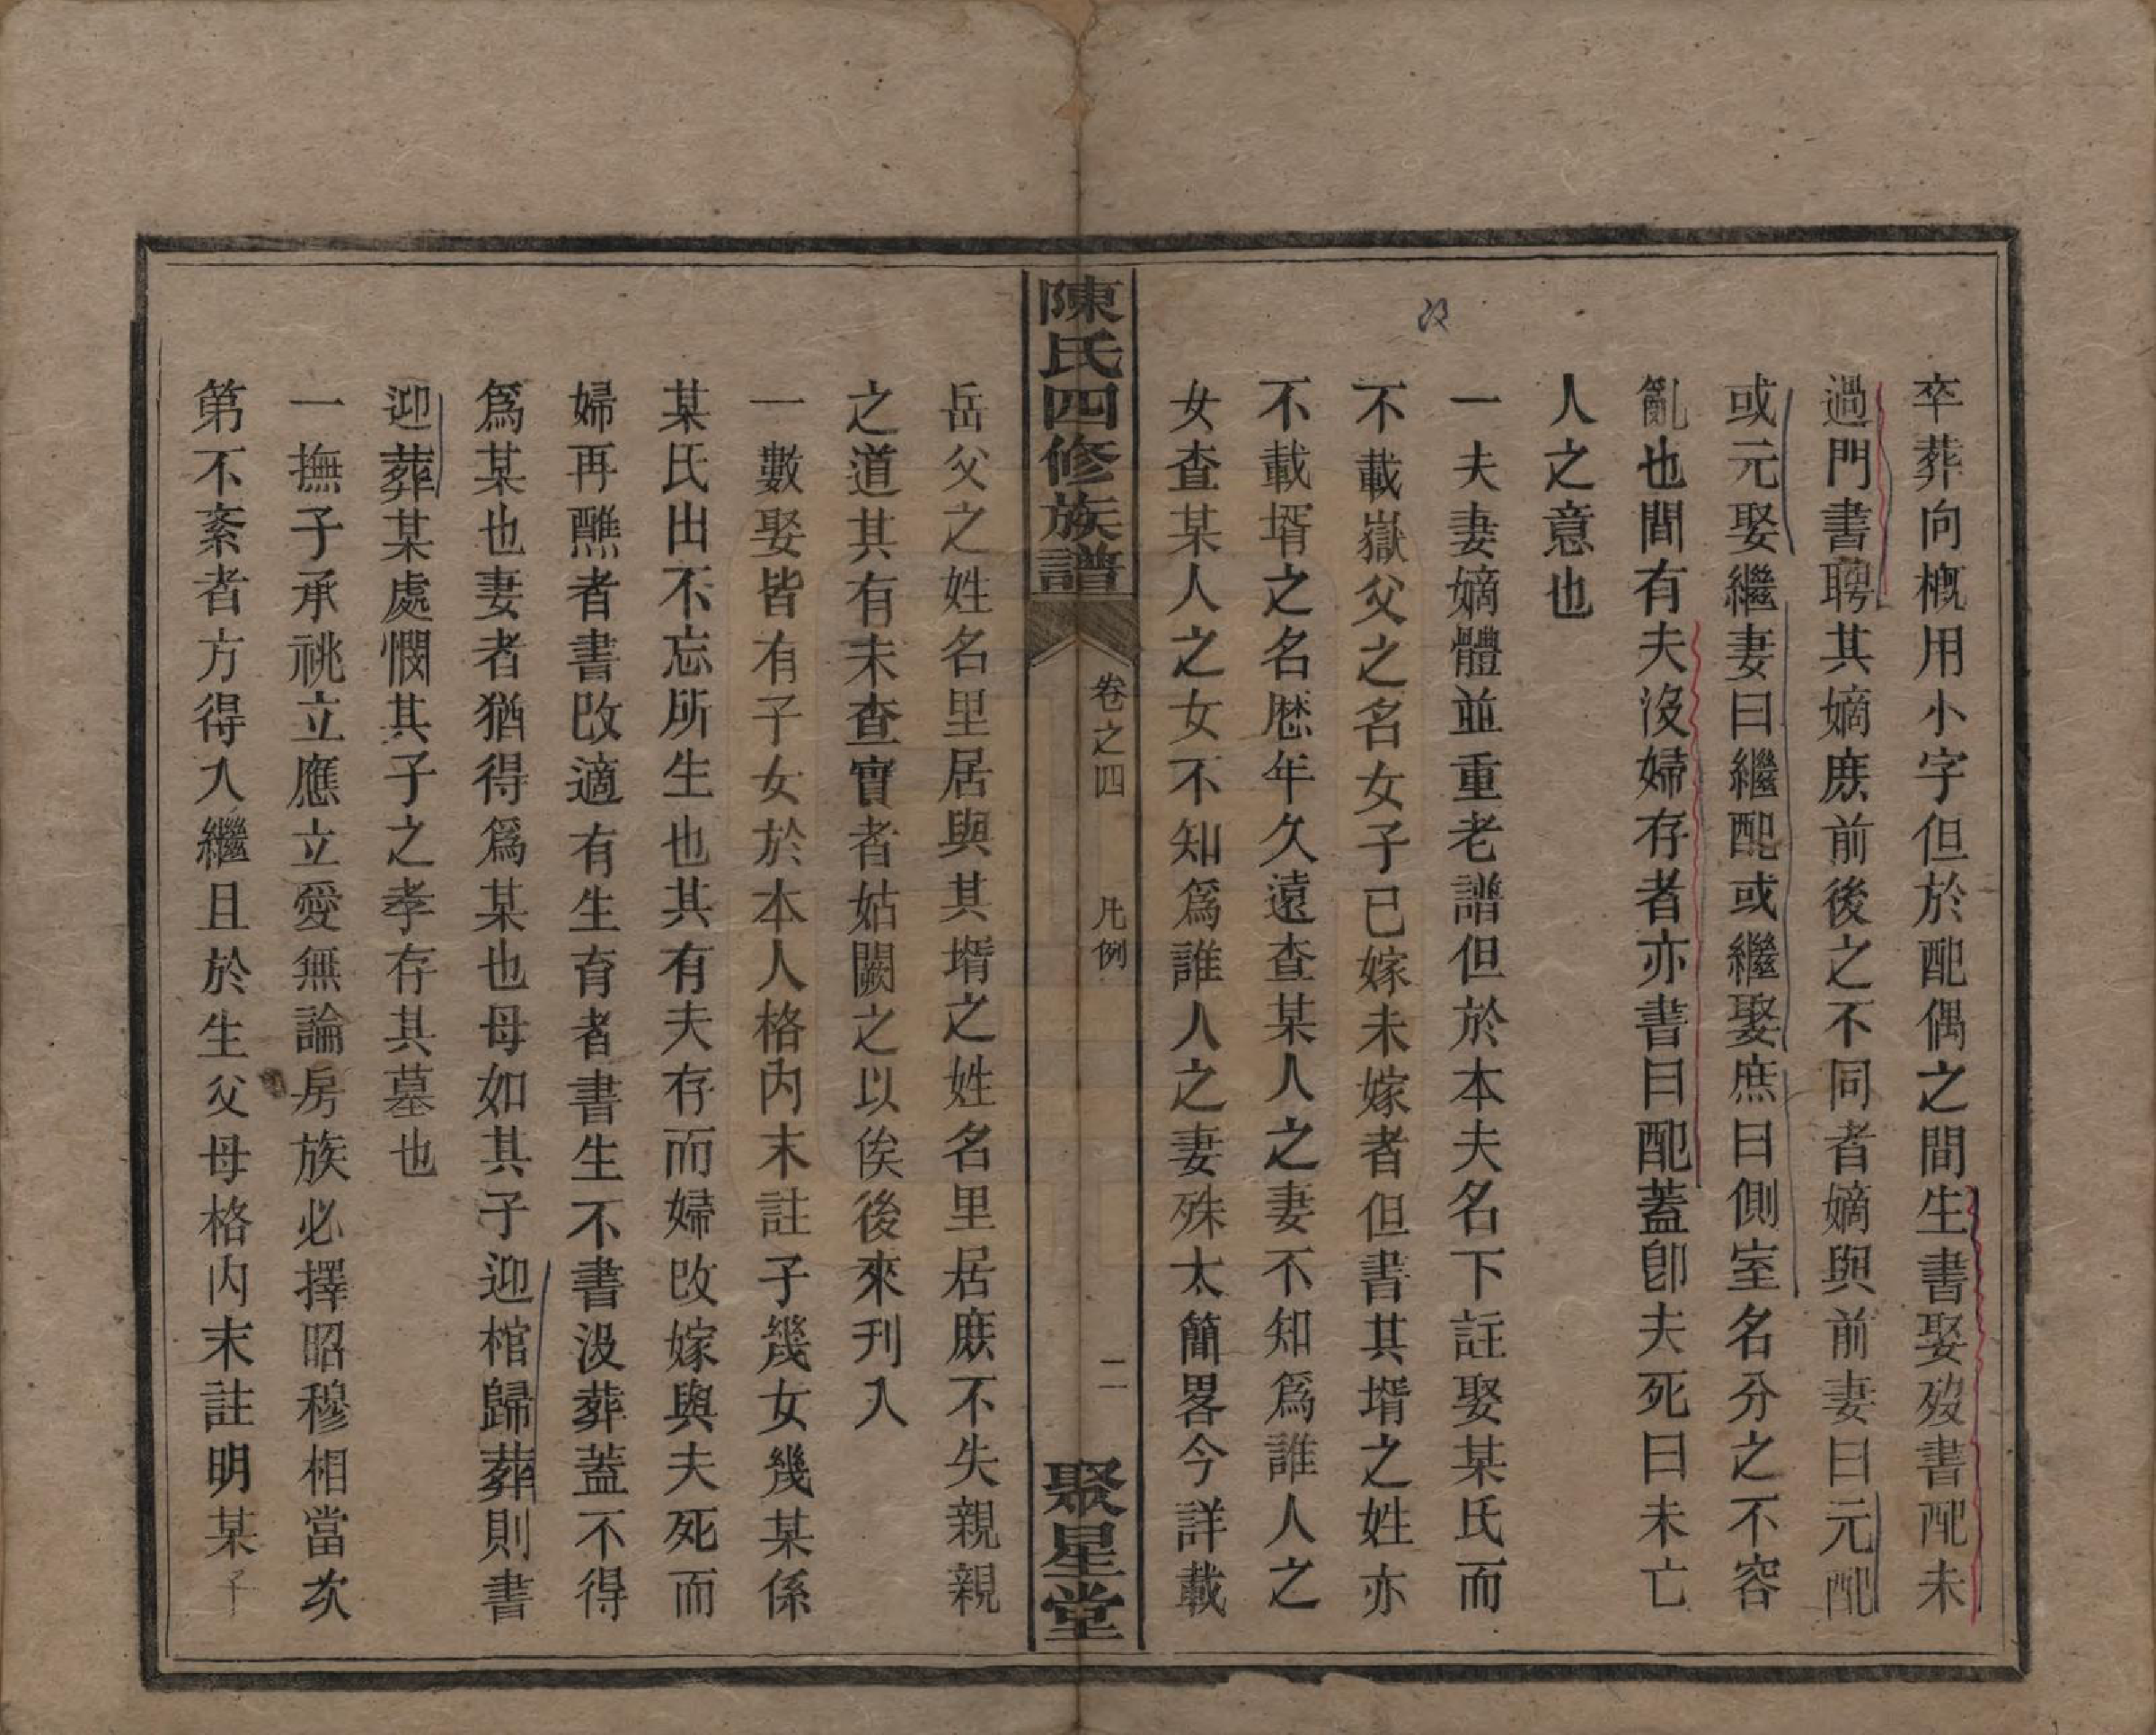 卒葬向概用小字但於配偶之間生書娶歿書配未
過門書聘其嫡庶前後之不同者嫡與前妻曰元配
或元娶繼妻曰繼配或繼娶庶曰側室名分之不容
亂也間有夫沒婦存者亦書曰配蓋卽夫死曰未亡
人之意也
一夫妻嫡體並重老譜但於本夫名下註娶某氏而
不載嶽父之名女子已嫁未嫁者但書其壻之姓亦
不載壻之名歴年久遠查某人之妻不知爲誰人之
女查某人之女不知爲誰人之妻殊太簡畧今詳載
陳氏四修族譜
卷之四
凡例
二
聚星堂
岳父之姓名里居與其壻之姓名里居庶不失親親
之道其有未查實者姑闕之以俟後來刊入
一數娶皆有子女於本人格内末註子幾女幾某係
某氏出不忘所生也其有夫存而婦改嫁與夫死而
婦再醮者書改適有生育者書生不書沒葬蓋不得
爲某也妻者猶得爲某也母如其子迎棺歸葬則書
迎葬某處憫其子之孝存其墓也
一撫子承祧立應立愛無論房族必擇昭穆相當次
第不紊者方得入繼且於生父母格内末註明某子